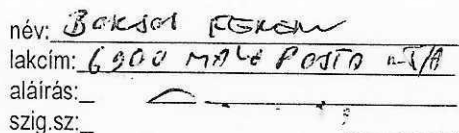 név: Baksai Ferenc
lakcím: 6900 Makó Posta u. 7/A
aláírás:
szig.sz: